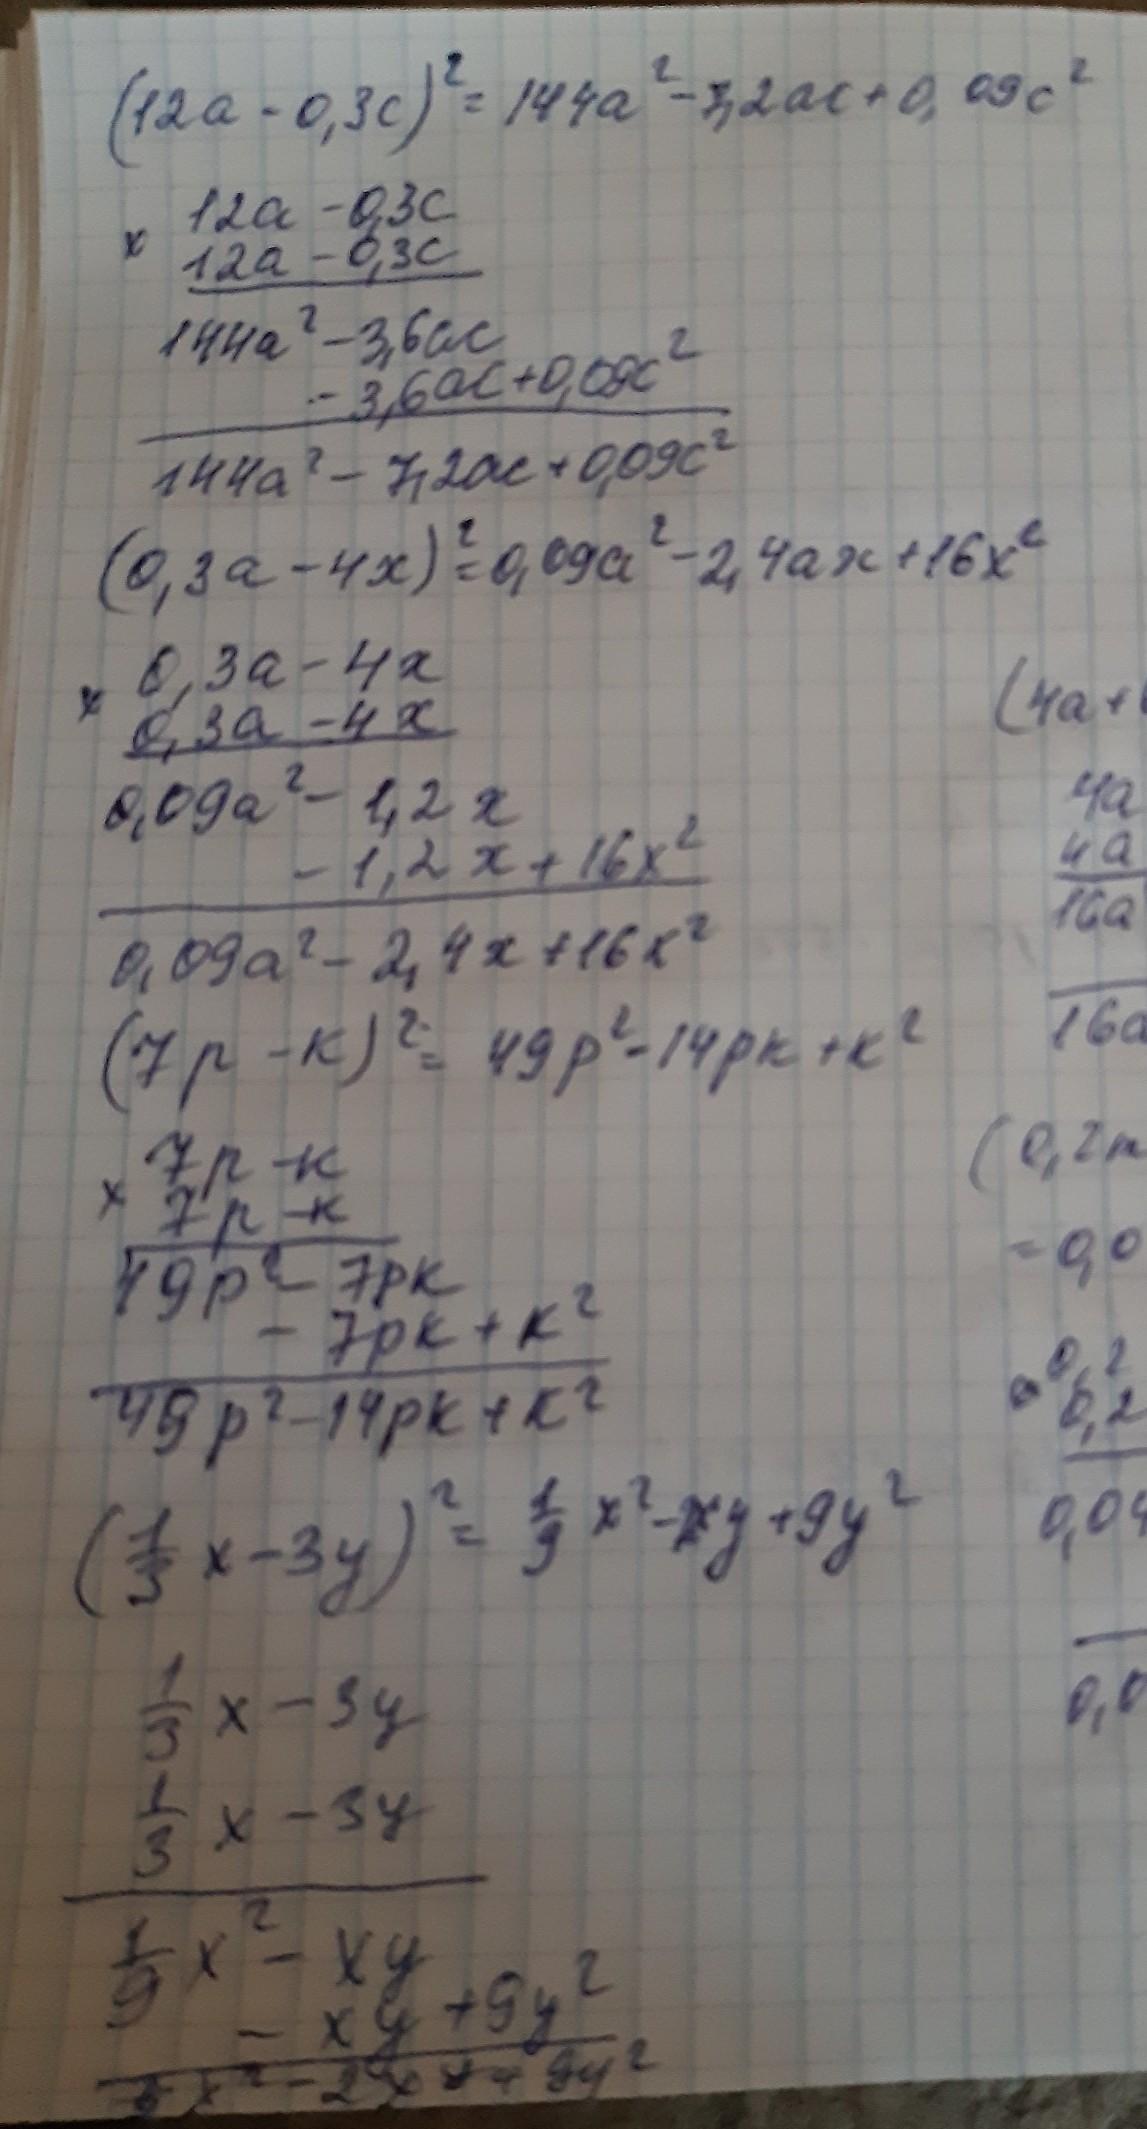 (12a - 0,3c)² = 144a² - 7,2ac + 0,09c²
x 12a - 0,3c
12a - 0,3c
144a² - 3,6ac
- 3,6ac + 0,09c²
144a² - 7,2ac + 0,09c²
(0,3a - 4x)² = 0,09a² - 2,4ax + 16x²
x 0,3a - 4x
0,3a - 4x
0,09a² - 1,2x
- 1,2x + 16x²
0,09a² - 2,4x + 16x²
(7p - k)² = 49p² - 14pk + k²
x 7p - k
7p - k
49p² - 7pk
- 7pk + k²
49p² - 14pk + k²
(1/3 x - 3y)² = 1/9 x² - xy + 9y²
1/3 x - 3y
1/3 x - 3y
1/9 x² - xy
- xy + 9y²
x² - 2xy + 9y²
(4a +
4a
4a
16a
16a
(0,2m
= 0,0
0,2
0,2
0,04
0,0